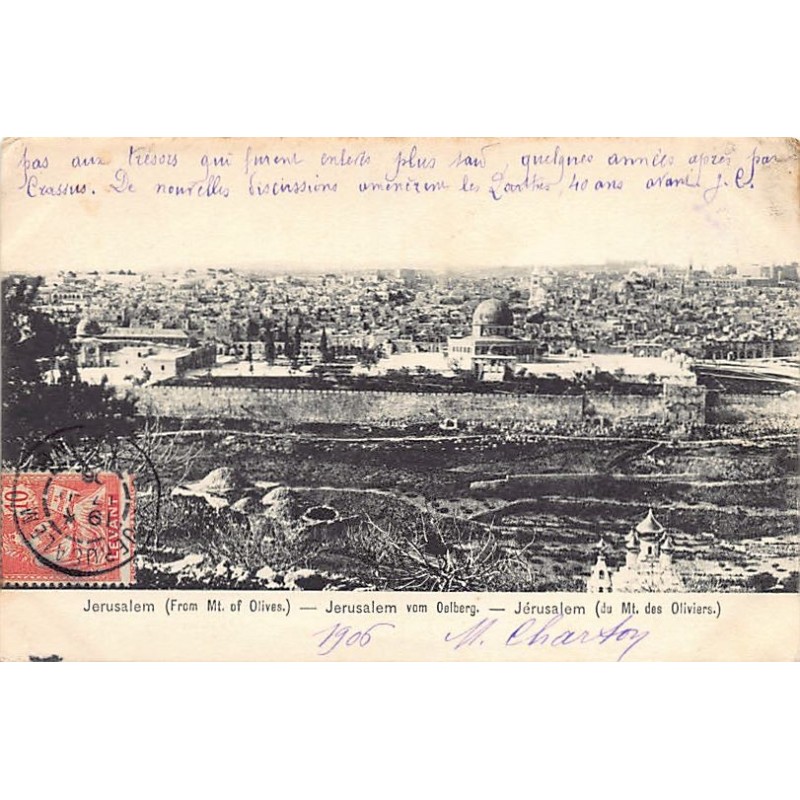 pas aux trésors qui furent enlevés plus tard, quelques années après par
Crassus. De nouvelles discussions amenèrent les Parthes, 40 ans avant J. C.
10
LEVANT
JERUSALEM
Jerusalem (From Mt. of Olives.) — Jerusalem vom Oelberg. — Jérusalem (du Mt. des Oliviers.)
1906 M. Charton